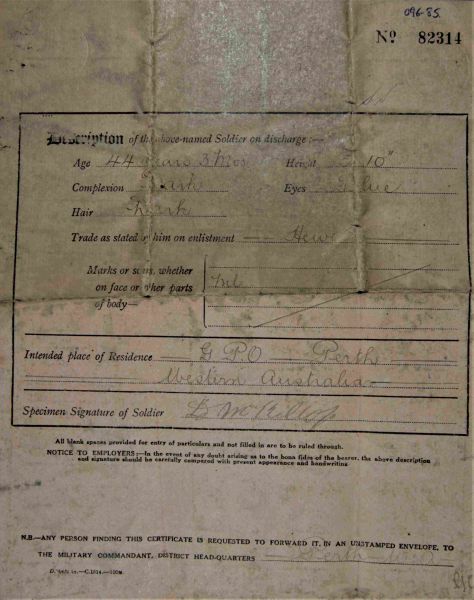 096-85
No 82314
Description of the above-named Soldier on discharge :—
Age 44 years 3 Mos Height 5 10"
Complexion Dark Eyes Blue
Hair Dark
Trade as stated by him on enlistment — Hewer
Marks or scars, whether
on face or other parts Nil
of body—
Intended place of Residence — G P O Perth
Western Australia
Specimen Signature of Soldier D McKillop
All blank spaces provided for entry of particulars and not filled in are to be ruled through.
NOTICE TO EMPLOYERS:—In the event of any doubt arising as to the bona fides of the bearer, the above description
and signature should be carefully compared with present appearance and handwriting
N.B.—ANY PERSON FINDING THIS CERTIFICATE IS REQUESTED TO FORWARD IT, IN AN UNSTAMPED ENVELOPE, TO
THE MILITARY COMMANDANT, DISTRICT HEAD-QUARTERS Perth